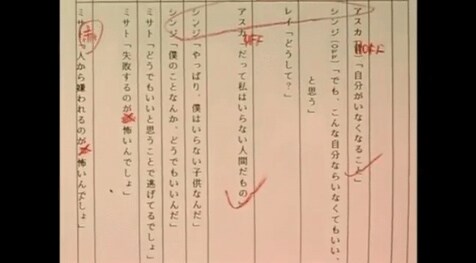 アスカ「自分がいなくなること」
OFF
シンジ(OFF)「でも、こんな自分ならいなくてもいい、
と思う」
レイ「どうして?」
アスカ「だって私はいらない人間だもの」
OFF
シンジ「やっぱり、僕はいらない子供なんだ」
シンジ「僕のことなんか、どうでもいいんだ」
ミサト「どうでもいいと思うことで逃げてるでしょ」
ミサト「失敗するのが怖いんでしょ」
ミサト「人から嫌われるのが怖いんでしょ」